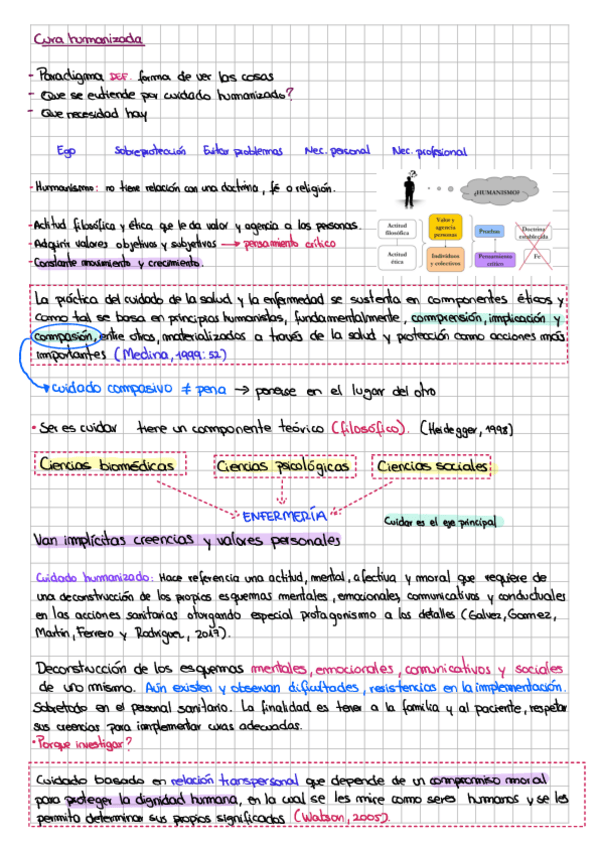 Cura humanizada
- Paradigma DEF. forma de ver las cosas
- Que se entiende por cuidado humanizado?
- Que necesidad hay
Ego Sobreprotección Evitar problemas Nec. personal Nec. profesional
- Humanismo: no tiene relación con una doctrina, fé o religión.
¿HUMANISMO?
- Actitud filosófica y ética que le da valor y agencia a las personas.
- Adquirir valores objetivos y subjetivos → pensamiento crítico
- Constante movimiento y crecimiento.
Actitud filosófica
Valor y agencia personas
Pruebas
Doctrina establecida
Actitud ética
Individuos y colectivos
Pensamiento crítico
Fe
La práctica del cuidado de la salud y la enfermedad se sustenta en componentes éticos y
como tal se basa en principios humanistas, fundamentalmente, comprensión, implicación y
compasión, entre otros, materializados a través de la salud y protección como acciones más
importantes (Medina, 1999: 52)
cuidado compasivo ≠ pena → ponerse en el lugar del otro
• Ser es cuidar tiene un componente teórico (filosófico). (Heidegger, 1998)
Ciencias biomédicas Ciencias psicológicas Ciencias sociales
ENFERMERÍA
Cuidar es el eje principal
Van implícitas creencias y valores personales
Cuidado humanizado: Hace referencia una actitud, mental, afectiva y moral que requiere de
una deconstrucción de los propios esquemas mentales, emocionales, comunicativos y conductuales
en las acciones sanitarias otorgando especial protagonismo a los detalles (Galvez, Gomez,
Martin, Ferrero y Rodriguez, 2017).
Deconstrucción de los esquemas mentales, emocionales, comunicativos y sociales
de uno mismo. Aún existen y observan dificultades, resistencias en la implementación.
Sobretodo en el personal sanitario. La finalidad es tener a la familia y al paciente, respetar
sus creencias para implementar curas adecuadas.
• Porque investigar?
Cuidado basado en relación transpersonal que depende de un compromiso moral
para proteger la dignidad humana, en la cual se les mire como seres humanos y se les
permita determinar sus propios significados (Watson, 2005).